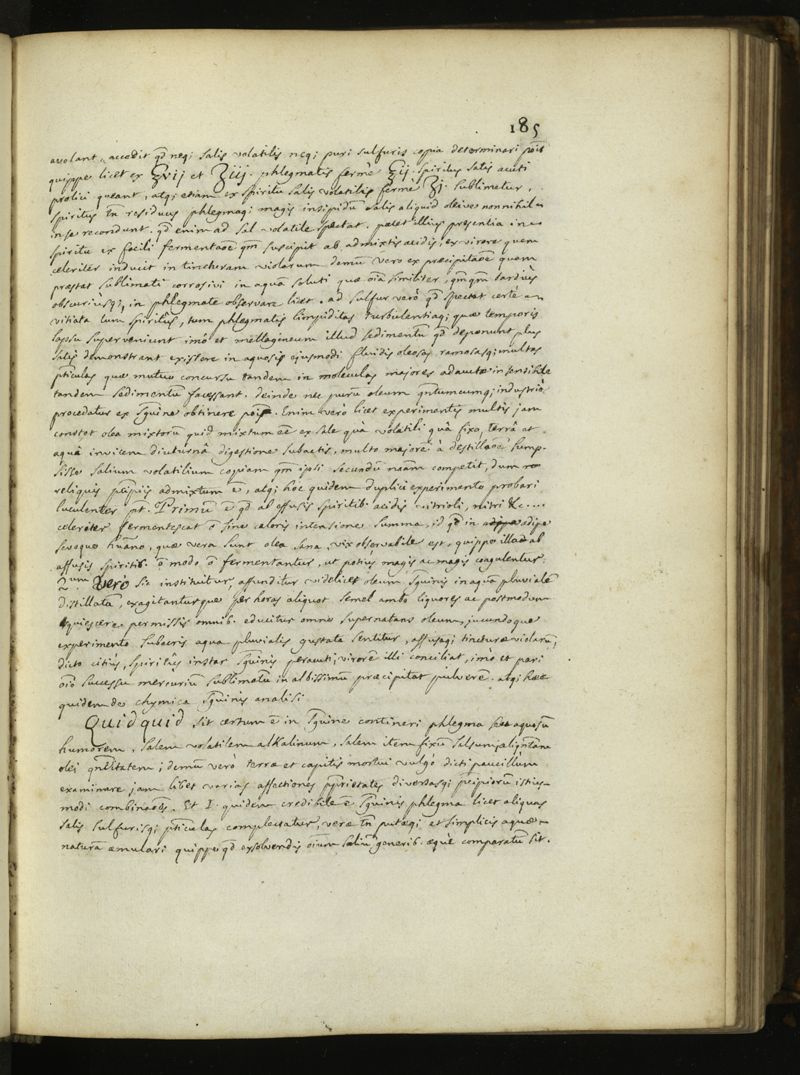 185
avolant, accedit qd neq; salis volatilis neq; puri sulfuris copia determinari pōit
quippe licet ex ʒvij et ʒiij. phlegmatis fermè ʒij. spiritus satis acuti
prolici queant, atq; etiam ex spiritu salis volatilis fermè ʒj. sublimetur,
spiritus tn̄ residuus phlegmaq; magis insipidū salis aliquid oleive nonnihil
in se recondunt. qd enim ad sal volatile spectat. patet illius presentia in
spiritu ex facili fermentaōe qm̄ suscipit ab admixtis acidis, ex virore quem
celeriter inducit in tincturam violarum demū vero ex præcipitaōe quem
præstat sublimati corrosivi in aquâ soluti quæ oīa similiter, qm̄qm̄ tardiùs
obscuriusq;, in phlegmate observare licet. ad sulfur verò qd spectat certè
vitiata tum spiritûs, tum phlegmatis limpiditas turbulentiaq; quæ temporis
lapsu superveniunt imò et mellagineum illud sedimentū qd deponunt plus
satis demonstrant existere in aquosis ejusmodi fluidis oleosas ramosasq; multas
pticulas quæ mutuo concursu tandem in moleculas majores adauctæ in sensibile
tandem sedimentū facessant. deinde nec purū oleum qntumcumq; industriè
procedatur ex sguine obtinere poīs. Enim verò licet experimentis multis jam
constet olea mixtorū quid mixtum eē ex sale quâ volatili quâ fixo, terrâ et
aquâ invicem diuturnâ digestione subactis, multo majorē à destillaōe
salium volatilium copiam qm̄ ipsi secundū naām competit, dum
reliquis pcipiis admixtum ē, atq; hoc quidem duplici experimento probari
luculenter pt. Primū ē qd ab effusis spiritib. acidis vitrioli, nitri &c....
celeriter fermentescat ō sine caloris intensione summa, id qd in adipe
sevoque hūano, quæ vera sunt olea sana, vix observabile est, quippe illa ab
affusis spiritib. ō modo ō fermentantur, ut potius magis ac magis coagulentur.
2.um Verò sic instituitur, affunditur videlicet oleum sguinis in aquæ pluviale
distillatâ, exagitanturque per horas aliquot semel ambo liquores ac postmodum
quiescere permissis omnib. educitur omne supernatans oleum, jucundoque
experimento subacris aqua pluvialis gustata sentitur, affusaq; tincturæ violarū,
dicto citiùs, spiritûs instar sguinis peracuti, virorē illi conciliat, imò et pari
oīō successu mercuriū sublimatū in albissimū præcipitat pulverē. atq; hæc
quidem de chymica sguinis analisi.
Quidquid sit certum ē in sguine contineri phlegma seu aquosū
humorem, salem volatilem alkalinum, salem item fixū salsum; aliqntam
olei qntitatem; demū verò terræ et capitis mortui vulgo dicti pauxillum
examinare jam libet varias affectiones pprietates diversasq; pcipiorū istius-
modi combinaōes. Et 1. quidem credibile ē sguinis phlegma licet aliquas
salis sulfurisq; pticulas complectatur, veræ tn̄ putæq; et simplicis aquæ
naturā æmulari quippe qd exsolvendis oīum saliū generib. æquè comparatū sit.